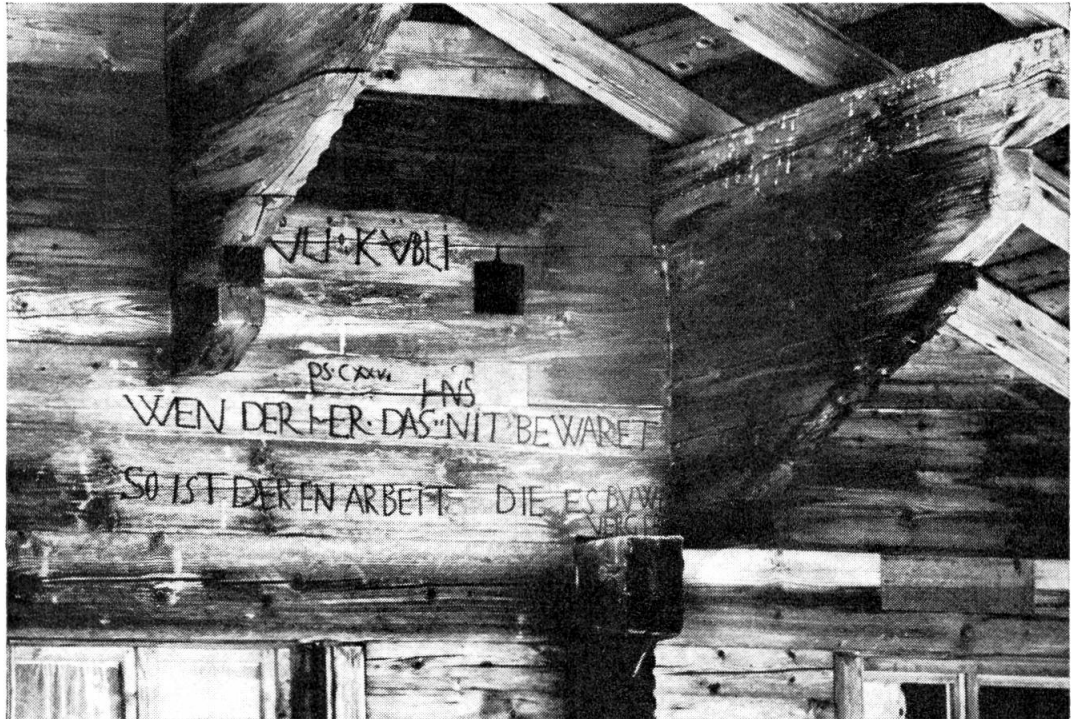 ṼLI·KÜBLI
PS·CXXVI
HVS
WEN DER HER· DAS··NIT BEWARET
SO IST DEREN ARBEIT DIE ES BVW
VERG